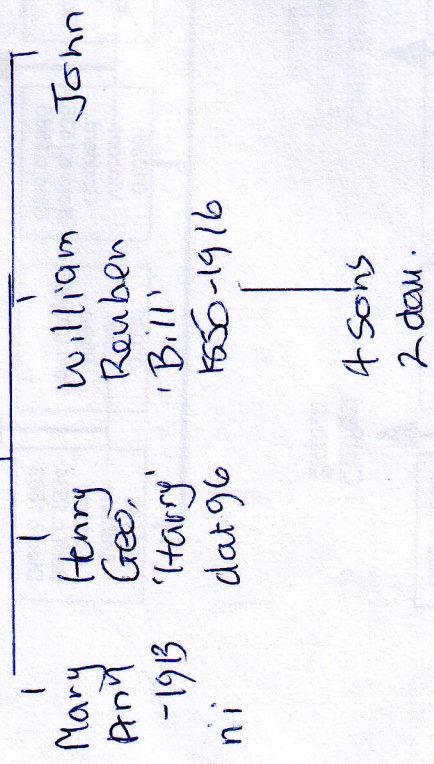 Mary
Ann
-1913
ni
Henry
Geo,
'Harry'
dat 96
William
Reuben
'Bill'
1850-1916
4 sons
2 dau.
John